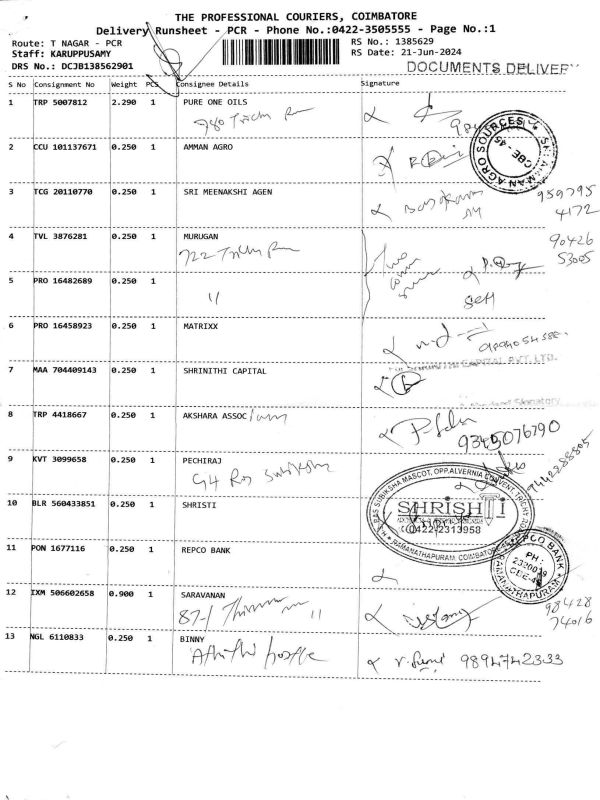 THE PROFESSIONAL COURIERS, COIMBATORE
Delivery Runsheet - PCR - Phone No.:0422-3505555 - Page No.:1
Route: T NAGAR - PCR
RS No.: 1385629
Staff: KARUPPUSAMY
RS Date: 21-Jun-2024
DRS No.: DCJB138562901
DOCUMENTS DELIVERY
S No Consignment No Weight PCS Consignee Details Signature
1 TRP 5007812 2.290 1 PURE ONE OILS
2 CCU 101137671 0.250 1 AMMAN AGRO
SRI AMMAN AGRO SOURCES
CBE - 45
3 TCG 20110770 0.250 1 SRI MEENAKSHI AGEN
959795
4172
4 TVL 3876281 0.250 1 MURUGAN
722 Trichy
90426
53005
5 PRO 16482689 0.250 1
"
Self
6 PRO 16458923 0.250 1 MATRIXX
7 MAA 704409143 0.250 1 SHRINITHI CAPITAL
8 TRP 4418667 0.250 1 AKSHARA ASSOC
9345076790
9 KVT 3099658 0.250 1 PECHIRAJ
94
9442288805
10 BLR 560433851 0.250 1 SHRISTI
SHRISHTI
0422-2313958
RAMANATHAPURAM, COIMBATORE
11 PON 1677116 0.250 1 REPCO BANK
REPCO BANK
PH:
2320039
CBE-45
RAMANATHAPURAM
12 IXM 506602658 0.900 1 SARAVANAN
98428
74016
13 NGL 6110833 0.250 1 BINNY
9894742333